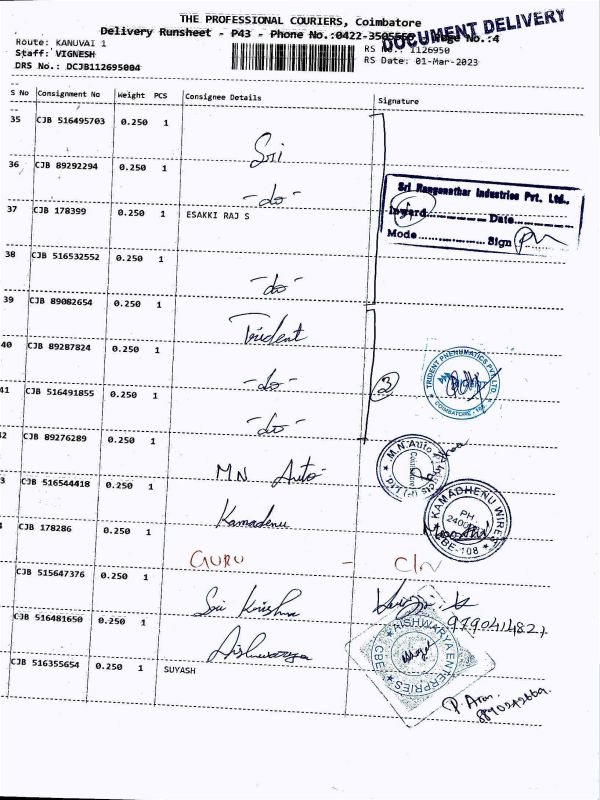 THE PROFESSIONAL COURIERS, Coimbatore
DOCUMENT DELIVERY
Delivery Runsheet - P43 - Phone No.:0422-3505550 Page No.:4
Route: KANUVAI 1
Staff: VIGNESH
RS No.: 1126950
DRS No.: DCJB112695004
RS Date: 01-Mar-2023
S No Consignment No Weight PCS Consignee Details Signature
35 CJB 516495703 0.250 1 Sri
36 CJB 89292294 0.250 1 -do-
Sri Ranganathar Industries Pvt. Ltd.,
Inward............Date............
Mode............Sign
37 CJB 178399 0.250 1 ESAKKI RAJ S
38 CJB 516532552 0.250 1 -do-
39 CJB 89082654 0.250 1 Trident
40 CJB 89287824 0.250 1 -do-
3
TRIDENT PNEUMATICS PVT LTD
TRIDENT
COIMBATORE
41 CJB 516491855 0.250 1 -do-
2 CJB 89276289 0.250 1 M.N Auto
M.N.Auto
Coimbatore
3 CJB 516544418 0.250 1 Kamadenu
KAMADHENU WIRES
PH
CBE-108
CJB 178286 0.250 1 GURU - C/N
CJB 515647376 0.250 1 Sri Krishna
9790414827
CJB 516481650 0.250 1 Aishwarya
AISHWARYA ENTERPRIES
CBE
CJB 516355654 0.250 1 SUYASH